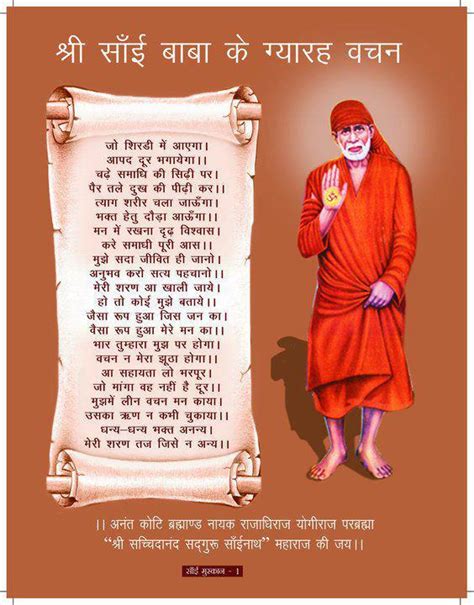 श्री साँई बाबा के ग्यारह वचन
जो शिरडी में आएगा।
आपद दूर भगायेगा।।
चढ़े समाधि की सिढ़ी पर।
पैर तले दुख की पीढ़ी कर।।
त्याग शरीर चला जाऊँगा।
भक्त हेतु दौड़ा आऊँगा।।
मन में रखना दृढ़ विश्वास।
करे समाधी पूरी आस।।
मुझे सदा जीवित ही जानो।
अनुभव करो सत्य पहचानो।।
मेरी शरण आ खाली जाये।
हो तो कोई मुझे बताये।।
जैसा रूप हुआ जिस जन का।
वैसा रूप हुआ मेरे मन का।।
भार तुम्हारा मुझ पर होगा।
वचन न मेरा झूठा होगा।।
आ सहायता लो भरपूर।
जो मांगा वह नहीं है दूर।।
मुझमें लीन वचन मन काया।
उसका ऋण न कभी चुकाया।।
धन्य-धन्य भक्त अनन्य।
मेरी शरण तज जिसे न अन्य।।
।। अनंत कोटि ब्रह्माण्ड नायक राजाधिराज योगीराज परब्रह्मा
“श्री सच्चिदानंद सद्गुरू साँईनाथ” महाराज की जय।।
साँई मुस्कान - 1